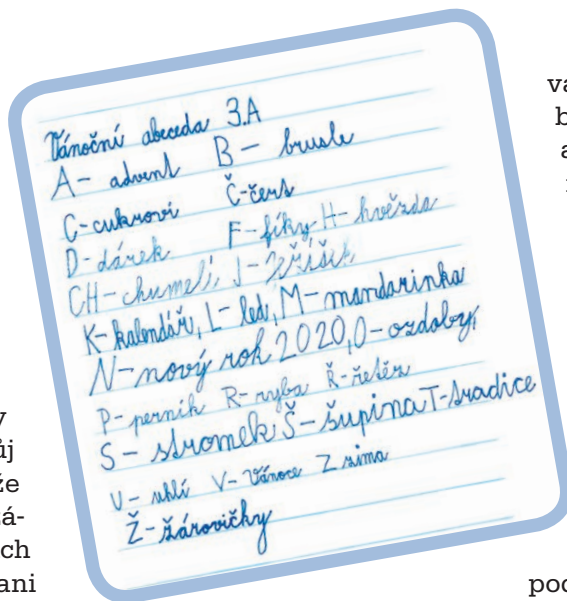 Vánoční abeceda 3.A
A- advent B- brusle
C-cukroví Č-čert
D-dárek F-fíky H-hvězda
CH-chumelí, J-Ježíšek
K-kalendář, L-led, M-mandarinka
N-nový rok 2020, O-ozdoby,
P-perník R-ryba Ř-řetěz
S-stromek Š-šupina T-tradice
U-uhlí V-Vánoce Z zima
Ž-žárovičky
vá
b
a
y
ůj
že
zá-
ch
ani
pod